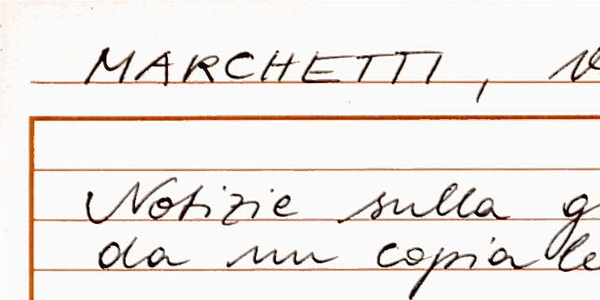 MARCHETTI, V
Notizie sulla g
da un copiale